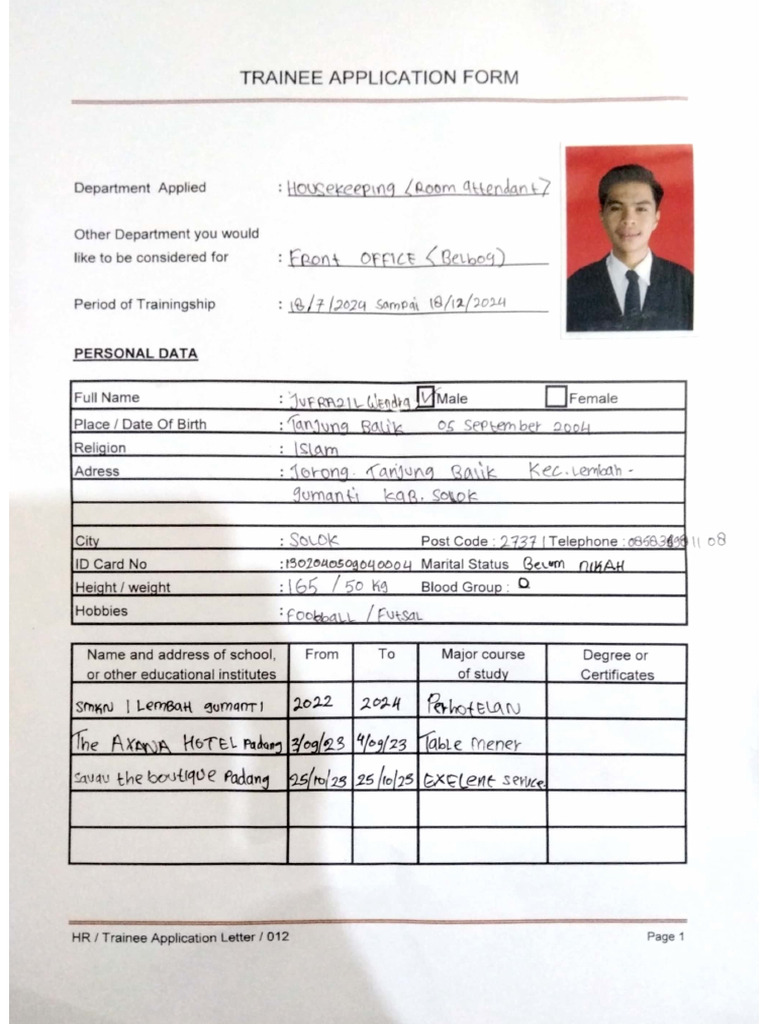 TRAINEE APPLICATION FORM
Department Applied : Housekeeping (Room attendant)
Other Department you would
like to be considered for : Front OFFICE (Belbog)
Period of Trainingship : 18/7/2024 sampai 18/12/2024
PERSONAL DATA
Full Name : JUFRAZIL Wendra ☑ Male ☐ Female
Place / Date Of Birth : Tanjung Balik 05 September 2004
Religion : Islam
Adress : Jorong. Tanjung Balik Kec. Lembah -
gumanti kab. Solok
City : Solok Post Code : 27371 Telephone :
ID Card No : 1302040509040004 Marital Status Belum NIKAH
Height / weight : 165 / 50 kg Blood Group : O
Hobbies : Football / Futsal
Name and address of school, From To Major course Degree or
or other educational institutes of study Certificates
SMKN 1 LEMBAH gumanti 2022 2024 PerhotELAN
The AXANA HOTEL Padang 3/09/23 4/09/23 Table mener
savau the boutique Padang 25/10/23 25/10/23 EXELent service.
HR / Trainee Application Letter / 012 Page 1